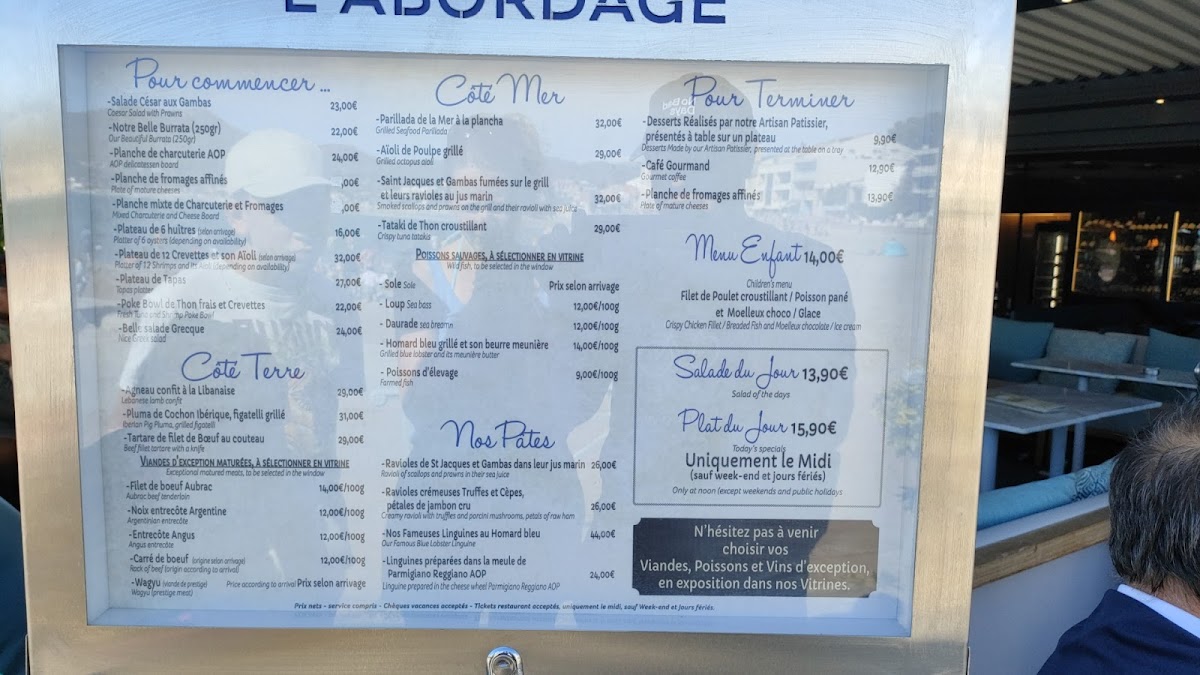 L'ABORDAGE
Pour commencer ...
-Salade César aux Gambas 23,00€
Caesar Salad with Prawns
-Notre Belle Burrata (250gr) 22,00€
Our Beautiful Burrata (250gr)
-Planche de charcuterie AOP 24,00€
AOP delicatessen board
-Planche de fromages affinés ,00€
Plate of mature cheeses
-Planche mixte de Charcuterie et Fromages ,00€
Mixed Charcuterie and Cheese Board
-Plateau de 6 huîtres (selon arrivage) 16,00€
Platter of 6 oysters (depending on availability)
-Plateau de 12 Crevettes et son Aïoli (selon arrivage) 32,00€
Platter of 12 Shrimps and its Aioli (depending on availability)
-Plateau de Tapas 27,00€
Tapas platter
-Poke Bowl de Thon frais et Crevettes 22,00€
Fresh Tuna and Shrimp Poke Bowl
-Belle salade Grecque 24,00€
Nice Greek salad
Côté Terre
-Agneau confit à la Libanaise 29,00€
Lebanese lamb confit
-Pluma de Cochon Ibérique, figatelli grillé 31,00€
Iberian Pig Pluma, grilled figatelli
-Tartare de filet de Bœuf au couteau 29,00€
Beef fillet tartare with a knife
Viandes d'exception maturées, à sélectionner en vitrine
Exceptional matured meats, to be selected in the window
-Filet de boeuf Aubrac 14,00€/100g
Aubrac beef tenderloin
-Noix entrecôte Argentine 12,00€/100g
Argentinian entrecôte
-Entrecôte Angus 12,00€/100g
Angus entrecôte
-Carré de boeuf (origine selon arrivage) 12,00€/100g
Rack of beef (origin according to arrival)
-Wagyu (viande de prestige) Price according to arrival Prix selon arrivage
Wagyu (prestige meat)
Côté Mer
-Parillada de la Mer à la plancha 32,00€
Grilled Seafood Parillada
-Aïoli de Poulpe grillé 29,00€
Grilled octopus aioli
-Saint Jacques et Gambas fumées sur le grill
et leurs ravioles au jus marin 32,00€
Smoked scallops and prawns on the grill and their ravioli with sea juice
-Tataki de Thon croustillant 29,00€
Crispy tuna tatakis
Poissons sauvages, à sélectionner en vitrine
Wild fish, to be selected in the window
- Sole Sole Prix selon arrivage
- Loup Sea bass 12,00€/100g
- Daurade sea breamn 12,00€/100g
- Homard bleu grillé et son beurre meunière 14,00€/100g
Grilled blue lobster and its meunière butter
- Poissons d'élevage 9,00€/100g
Farmed fish
Nos Pâtes
-Ravioles de St Jacques et Gambas dans leur jus marin 26,00€
Ravioli of scallops and prawns in their sea juice
-Ravioles crémeuses Truffes et Cèpes,
pétales de jambon cru 26,00€
Creamy ravioli with truffles and porcini mushrooms, petals of raw ham
-Nos Fameuses Linguines au Homard bleu 44,00€
Our Famous Blue Lobster Linguine
-Linguines préparées dans la meule de
Parmigiano Reggiano AOP 24,00€
Linguine prepared in the cheese wheel Parmigiano Reggiano AOP
Pour Terminer
-Desserts Réalisés par notre Artisan Patissier,
présentés à table sur un plateau 9,90€
Desserts Made by our Artisan Patissier, presented at the table on a tray
-Café Gourmand 12,90€
Gourmet coffee
-Planche de fromages affinés 13,90€
Plate of mature cheeses
Menu Enfant 14,00€
Children's menu
Filet de Poulet croustillant / Poisson pané
et Moelleux choco / Glace
Crispy Chicken Fillet / Breaded Fish and Moelleux chocolate / Ice cream
Salade du Jour 13,90€
Salad of the days
Plat du Jour 15,90€
Today's specials
Uniquement le Midi
(sauf week-end et jours fériés)
Only at noon (except weekends and public holidays
N'hésitez pas à venir
choisir vos
Viandes, Poissons et Vins d'exception,
en exposition dans nos Vitrines.
Prix nets - service compris - Chèques vacances acceptés - Tickets restaurant acceptés, uniquement le midi, sauf Week-end et jours fériés.